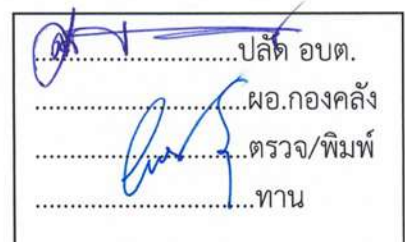 ........................ปลัด อบต.
........................ผอ.กองคลัง
........................ตรวจ/พิมพ์
........................ทาน